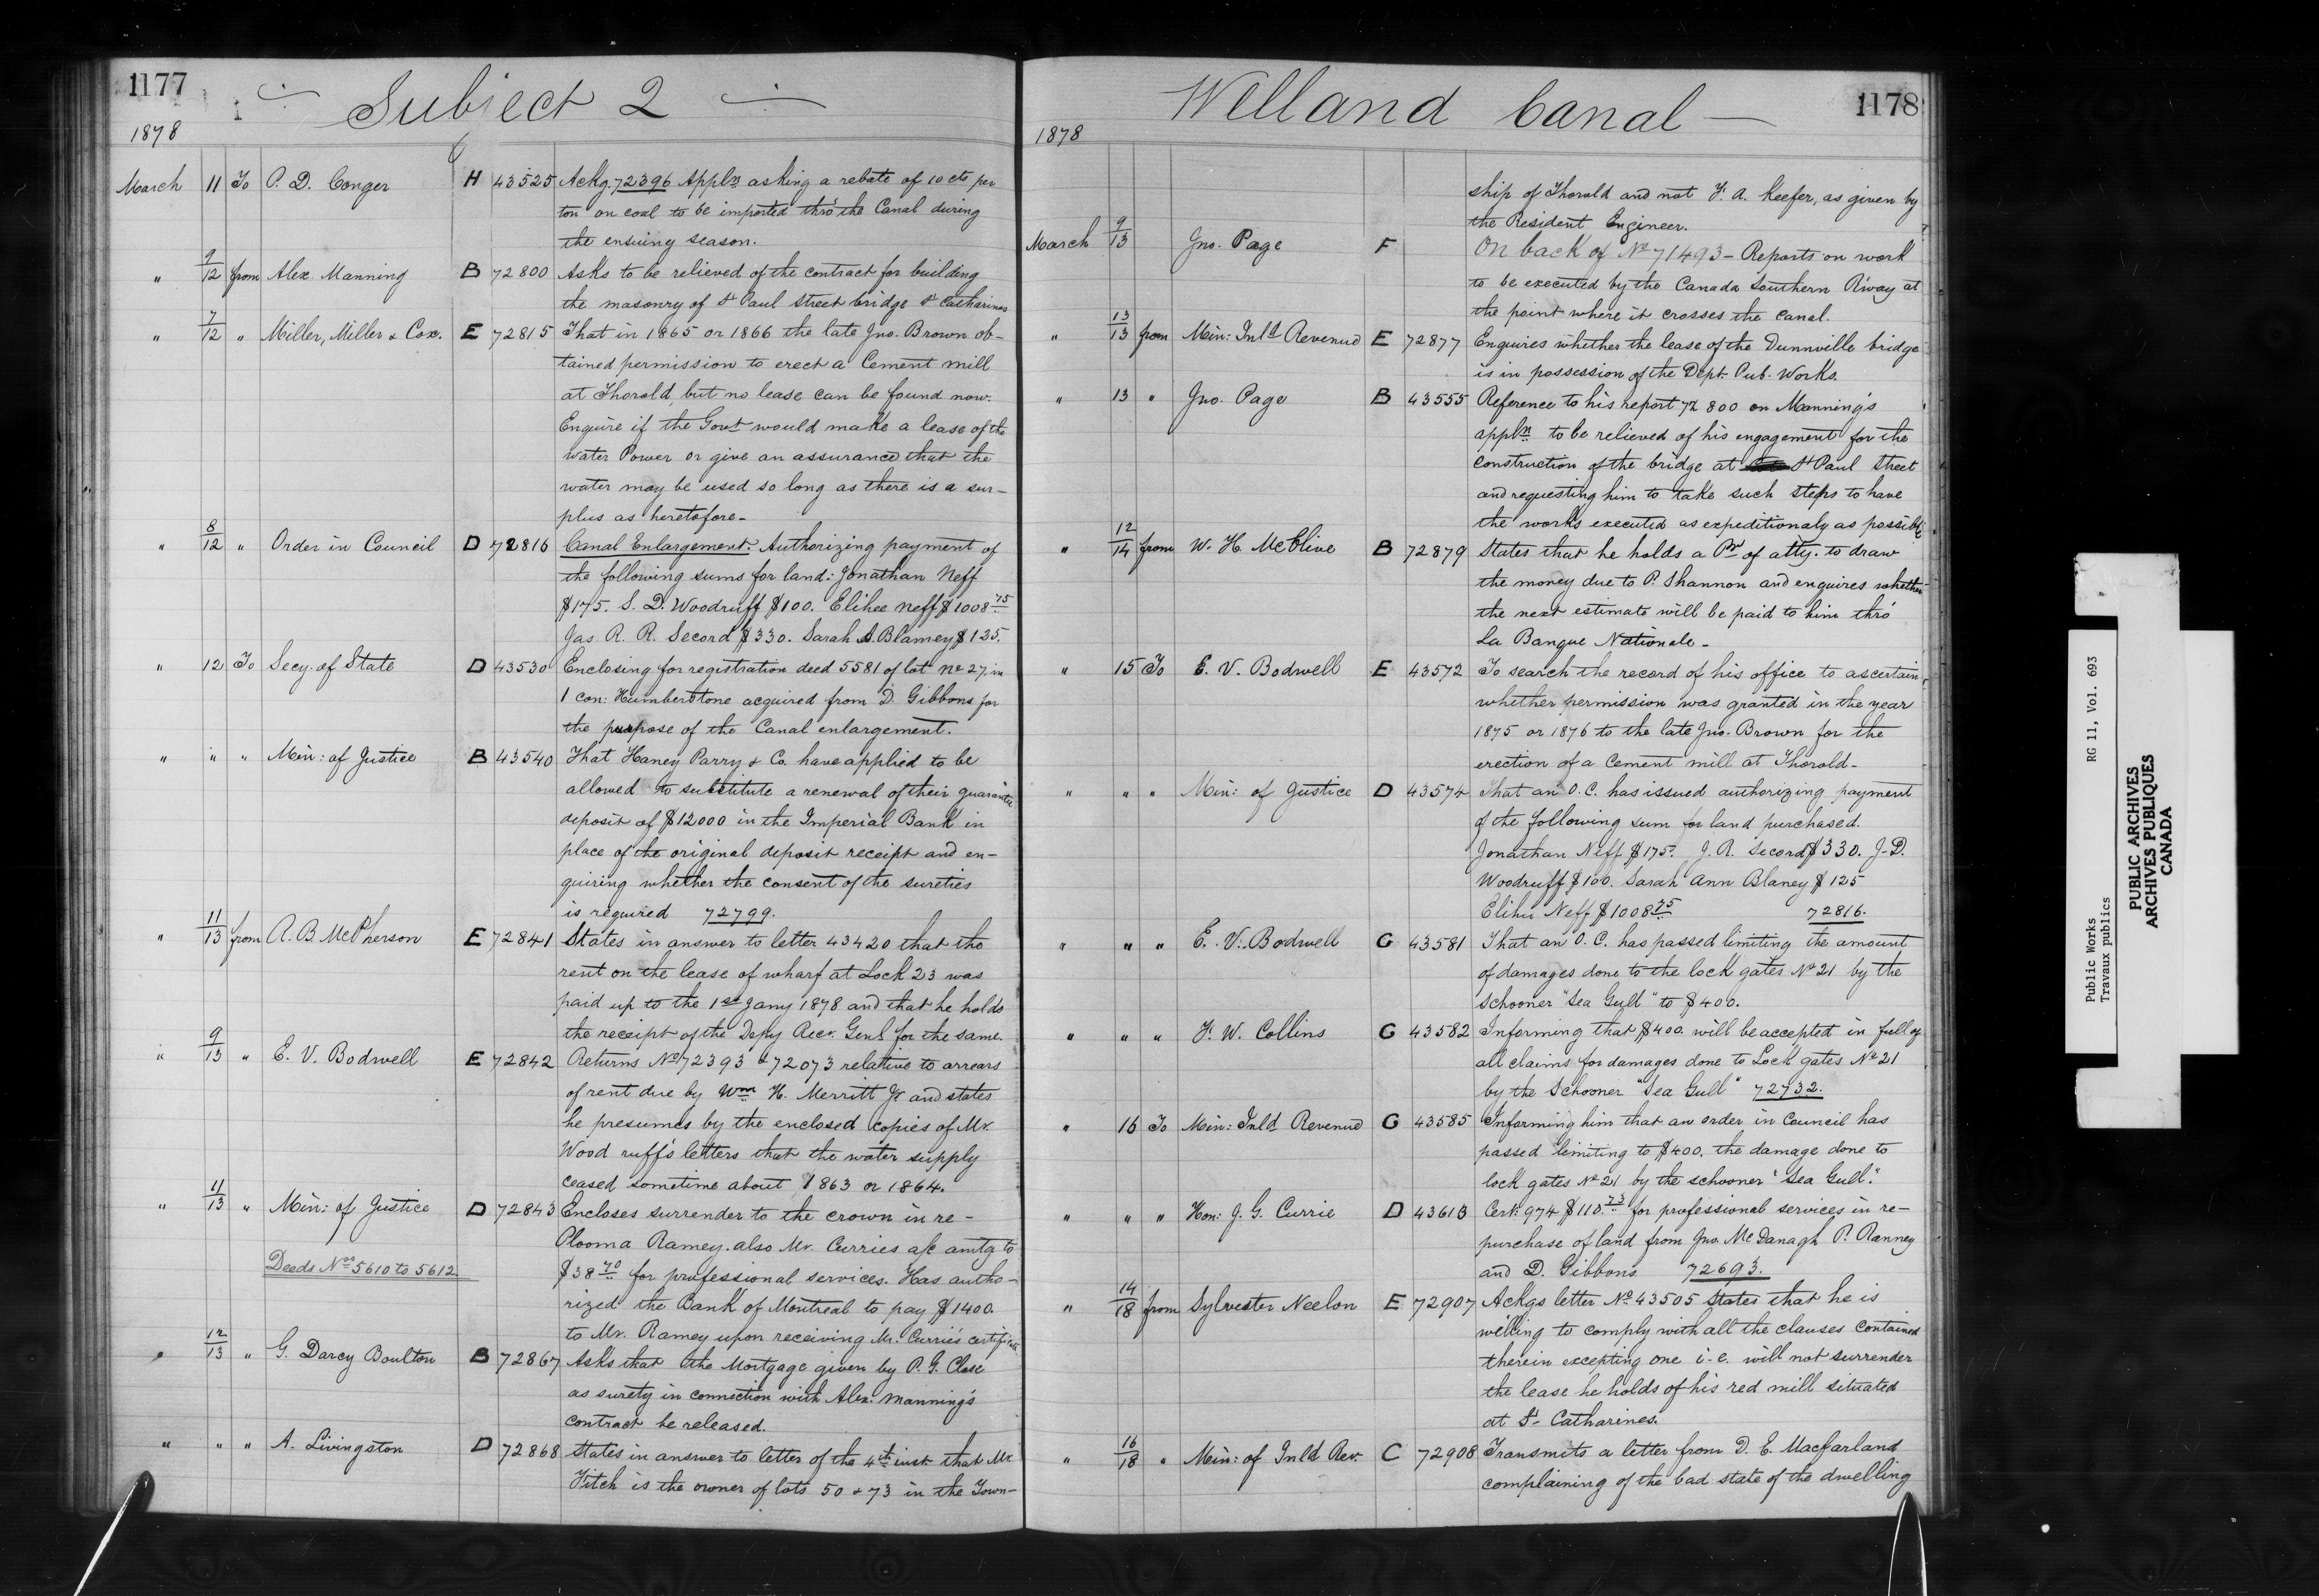 1177
Subject 2
1878
March 11 To P. D. Conger H 43525 Ackg. 72396 Appln asking a rebate of 10 cts per
ton on coal to be imported thro' the Canal during
the ensuing season.
" 9/12 from Alex. Manning B 72800 Asks to be relieved of the contract for building
the masonry of St Paul Street bridge St Catharines
" 7/12 " Miller, Miller & Cox. E 72815 That in 1865 or 1866 the late Jno. Brown ob-
tained permission to erect a Cement mill
at Thorold, but no lease can be found now.
Enquire if the Govt would make a lease of the
water Power or give an assurance that the
water may be used so long as there is a sur-
plus as heretofore-
" 8/12 " Order in Council D 72816 Canal Enlargement. Authorizing payment of
the following sums for land: Jonathan Neff
$175. S. D. Woodruff $100. Elihee Neff $1008.75
Jas. R. R. Secord $330. Sarah A. Blamey $125.
" 12 To Secy. of State D 43530 Enclosing for registration deed 5581 of lot No 27, in
1 con: Humberstone acquired from D. Gibbons for
the purpose of the Canal enlargement.
" " " Min: of Justice B 43540 That Haney Parry & Co. have applied to be
allowed to substitute a renewal of their guarantee
deposit of $12000 in the Imperial Bank in
place of the original deposit receipt and en-
quiring whether the consent of the sureties
is required 72799.
" 11/13 from A. B. McPherson E 72841 States in answer to letter 43420 that the
rent on the lease of wharf at Lock 23 was
paid up to the 1st Jany 1878 and that he holds
the receipt of the Depy Recr. Genl for the same.
" 9/13 " E. V. Bodwell E 72842 Returns Nos 72393 & 72073 relative to arrears
of rent due by Wm H. Merritt Jr and states
he presumes by the enclosed copies of Mr.
Wood ruff's letters that the water supply
ceased sometime about 1863 or 1864.
" 11/13 " Min: of Justice D 72843 Encloses surrender to the crown in re-
Plooma Ramey. also Mr. Curries a/c amtg to
Deeds Nos 5610 to 5612
$38.70 for professional services. Has autho-
rized the Bank of Montreal to pay $1400.
to Mr. Ramey upon receiving Mr. Currie's certificate
" 12/13 " G. Darcy Boulton B 72867 Asks that the Mortgage given by P. G. Close
as surety in connection with Alex. Manning's
contract be released.
" " " A. Livingston D 72868 States in answer to letter of the 4th inst. that Mr
Fitch is the owner of lots 50 & 73 in the Town-
Welland Canal
1178
1878
ship of Thorold and not F. A. Keefer, as given by
the Resident Engineer.
March 9/13 Jno. Page F On back of No 71493 - Reports on work
to be executed by the Canada Southern R'way at
the point where it crosses the Canal.
" 13/13 from Min: Inld Revenue E 72877 Enquires whether the lease of the Dunnville bridge
is in possession of the Dept. Pub. Works.
" 13 " Jno. Page B 43555 Reference to his report 72800 on Manning's
appln to be relieved of his engagement for the
construction of the bridge at St Paul Street
and requesting him to take such steps to have
the works executed as expeditionaly as possible
" 12/14 from W. H. McClive B 72879 States that he holds a Pr of atty. to draw
the money due to P. Shannon and enquires whether
the next estimate will be paid to him thro'
La Banque Nationale-
" 15 To E. V. Bodwell E 43572 To search the record of his office to ascertain
whether permission was granted in the year
1875 or 1876 to the late Jno. Brown for the
erection of a Cement mill at Thorold-
" " " Min: of Justice D 43574 That an O.C. has issued authorizing payment
of the following sum for land purchased.
Jonathan Neff $175. J. R. Secord $330. J. D.
Woodruff $100. Sarah Ann Blaney $125
Elihu Neff $1008.75 72816.
" " " E. V. Bodwell G 43581 That an O.C. has passed limiting the amount
of damages done to the lock gates No 21 by the
Schooner "Sea Gull" to $400.
" " " F. W. Collins G 43582 Informing that $400. will be accepted in full of
all claims for damages done to Lock gates No 21
by the Schooner "Sea Gull" 72732.
" 16 To Min: Inld Revenue G 43585 Informing him that an order in Council has
passed limiting to $400. the damage done to
lock gates No 21 by the schooner "Sea Gull."
" " " Hon: J. G. Currie D 43613 Cert: 974 $110.73 for professional services in re-
purchase of land from Jno. McDanagh P. Ranney
and D. Gibbons 72693.
" 14/18 from Sylvester Neelon E 72907 Ackgs letter No 43505 States that he is
willing to comply with all the clauses contained
therein excepting one i.e. will not surrender
the lease he holds of his red mill situated
at St. Catharines.
" 16/18 " Min: of Inld Rev. C 72908 Transmits a letter from D. E. Macfarland
complaining of the bad state of the dwelling
Public Works RG 11, Vol. 693
Travaux publics
PUBLIC ARCHIVES
ARCHIVES PUBLIQUES
CANADA